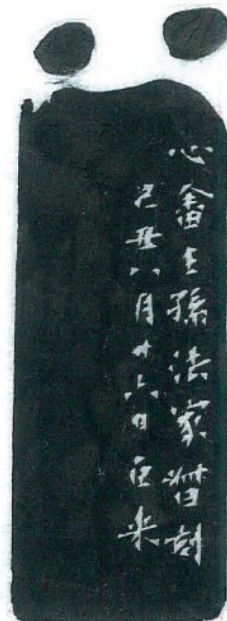 心畬王孫法家督刻
己丑八月廿六日巨来